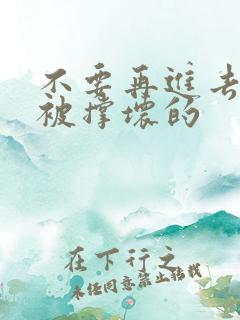 不要再進去
被撐壞的
在下行之
未经同意禁止转载